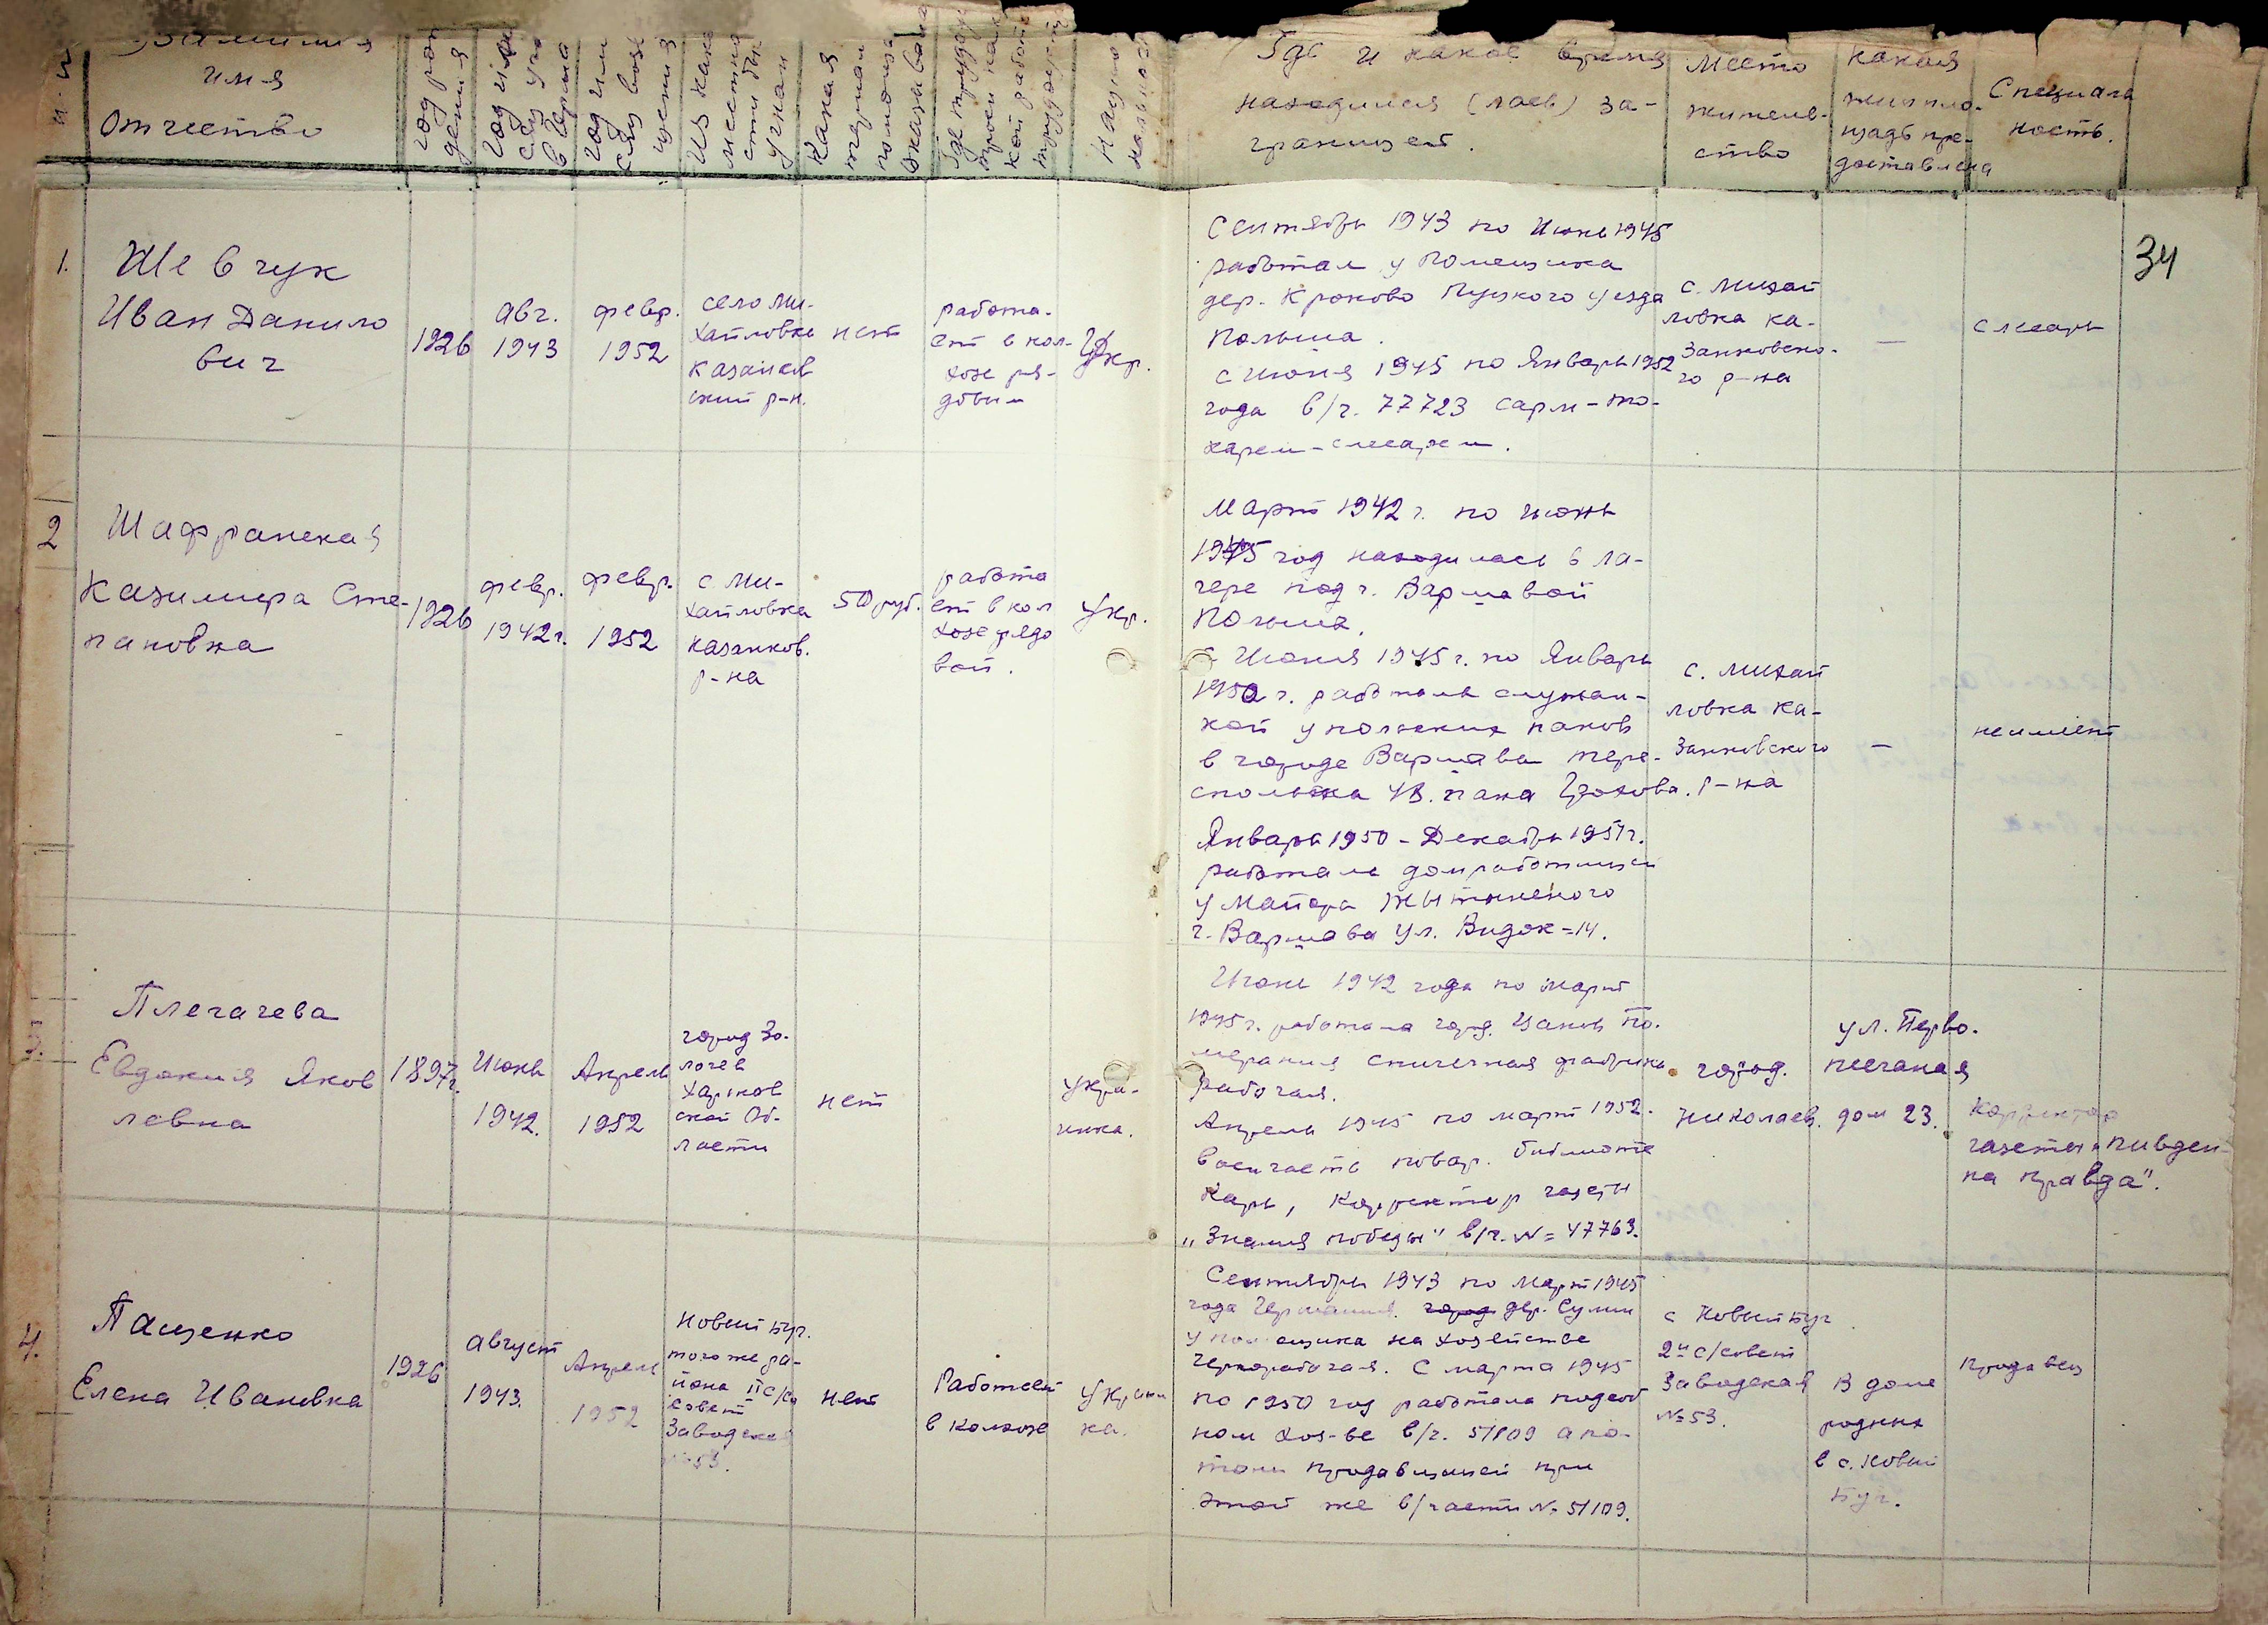 Фамилия
имя
отчество
Где и какое время
находился (лась) за-
границей.
Место
житель-
ство
какая
жилпло-
щадь пре-
доставлена
Специаль
ность.
34
1.
Шевчук
Иван Данило
вич
1926
авг.
1943
февр.
1952
село Ми-
хайловка
Казанков
ский р-н.
нет
работа-
ет в кол-
хозе ря-
довым
Укр.
Сентябрь 1943 по Июнь 1945
работал у помещика
дер. Кроково Пуцкого уезда
Польша.
с июня 1945 по Январь 1952
года в/ч. 77723 сарм-то-
карем-слесарем.
с. Михай
ловка Ка-
занковско-
го р-на
—
слесарь
2
Шафранская
Казимира Сте-
пановна
1926
февр.
1942 г.
февр.
1952
с. Ми-
хайловка
Казанков.
р-на
50 руб.
работа
ет в кол
хозе рядо
вой.
Укр.
Март 1942 г. по июнь
1945 год находилась в ла-
гере под г. Варшавой
Польша.
с Июня 1945 г. по Январь
1950 г. работала служан-
кой у польских панов
в городе Варшава
Январь 1950 - Декабрь 1951 г.
работала домработницей
у Майора
г. Варшава ул. Видок=14.
с. Михай
ловка Ка-
занковского
р-на
—
не имеет
3.
Плегачева
Евдокия Яков
левна
1897 г.
Июнь
1942.
Апрель
1952
город Зо-
лочев
Харьков
ской Об-
ласти
нет
Укра-
инка.
Июнь 1942 года по март
1945 г. работала гор. Цанов По-
мерания спичечная фабрика
рабочая.
Апрель 1945 по март 1952.
воинчасть повар. библиоте
карь, корректор газеты
"Знамя победы" в/ч. № = 47763.
город.
Николаев.
ул. Перво-
песчаная
дом 23.
Корректор
газеты "Пивден-
на правда".
4.
Пащенко
Елена Ивановна
1926
август
1943.
Апрель
1952
Новый Буг.
того же ра-
йона II с/со
совет
Заводская
№ 53.
нет
Работает
в колхозе
Украин
ка.
Сентябрь 1943 по Март 1945
года Германия. город дер. Сулин
у помещика на хозяйстве
чернорабочая. С марта 1945
по 1950 год работала подсоб
ном хоз-ве в/ч. 51109 а по-
том продавщицей при
этой же в/части № 51109.
с Новый Буг
2й с/совет
Заводская
№ 53.
В доме
родных
в с. Новый
Буг.
продавец